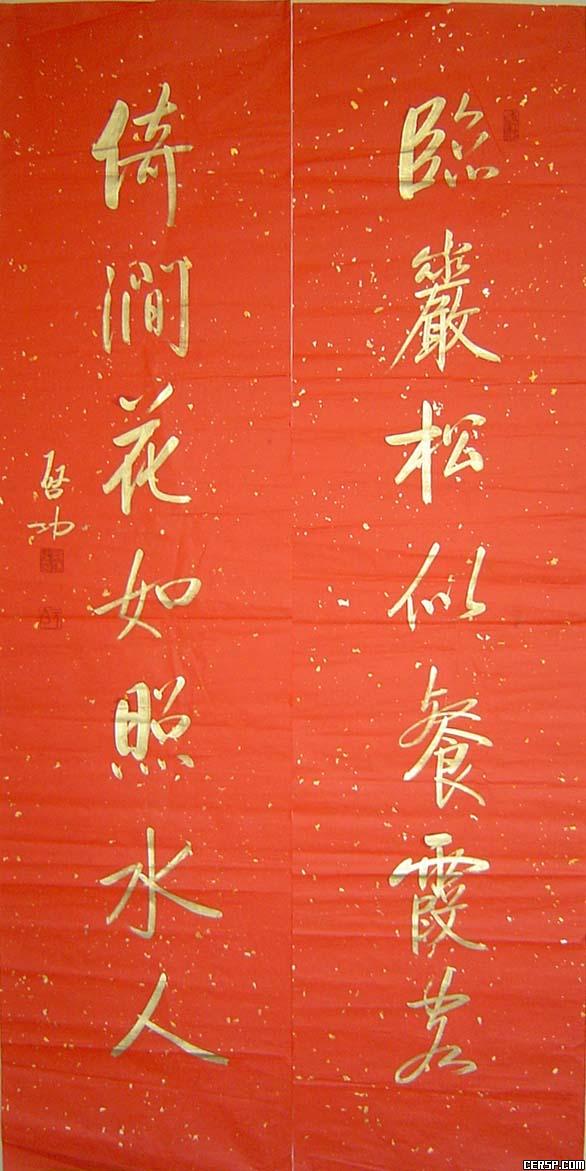 臨巖松似餐霞
倚澗花如照水人
启功
CERSP.COM